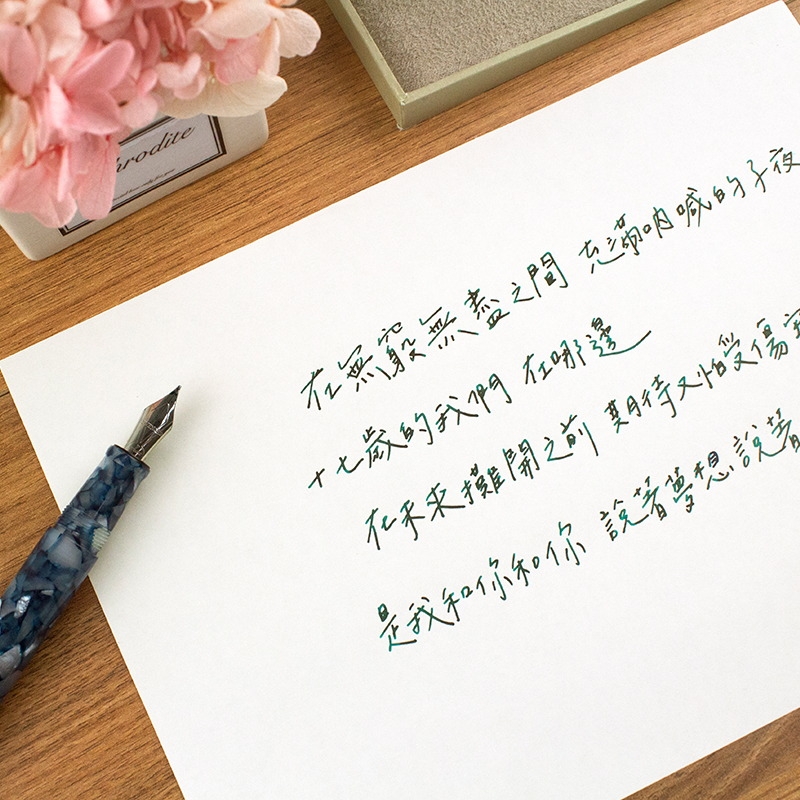 hrodite
在無窮無盡之間 充滿吶喊的子夜
十七歲的我們 在哪邊
在未來攤開之前 期待又怕受傷害
是我和你和你 說著夢想說著